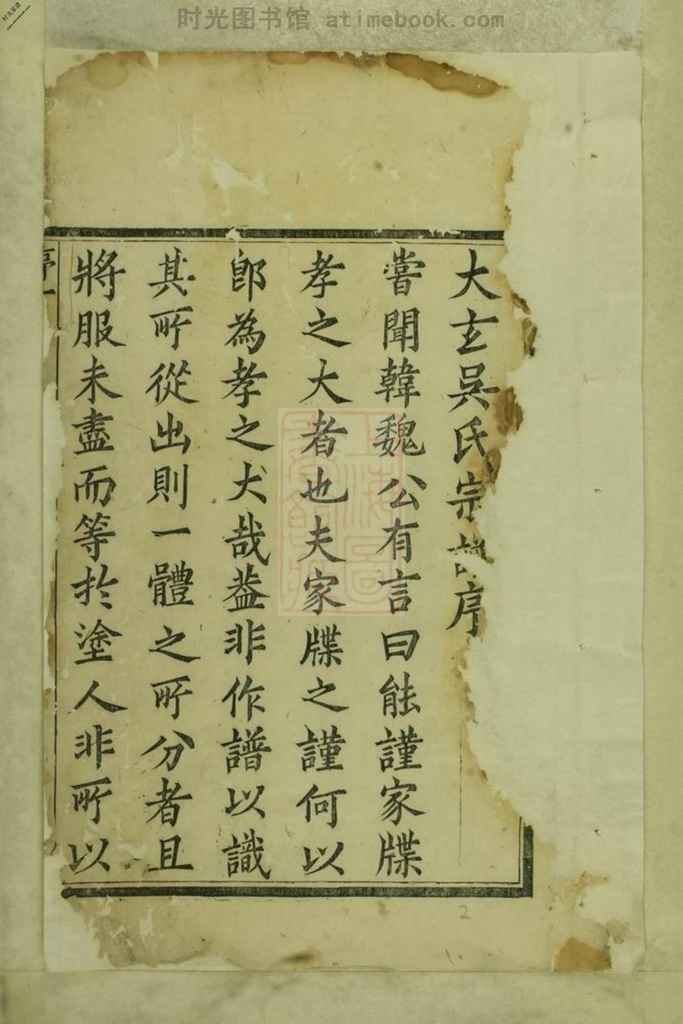 时光图书馆 atimebook.com
大玄吳氏宗譜序
嘗聞韓魏公有言曰能謹家牒
孝之大者也夫家牒之謹何以
郎為孝之大哉葢非作譜以識
其所從出則一體之所分者且
將服未盡而等於塗人非所以
序一